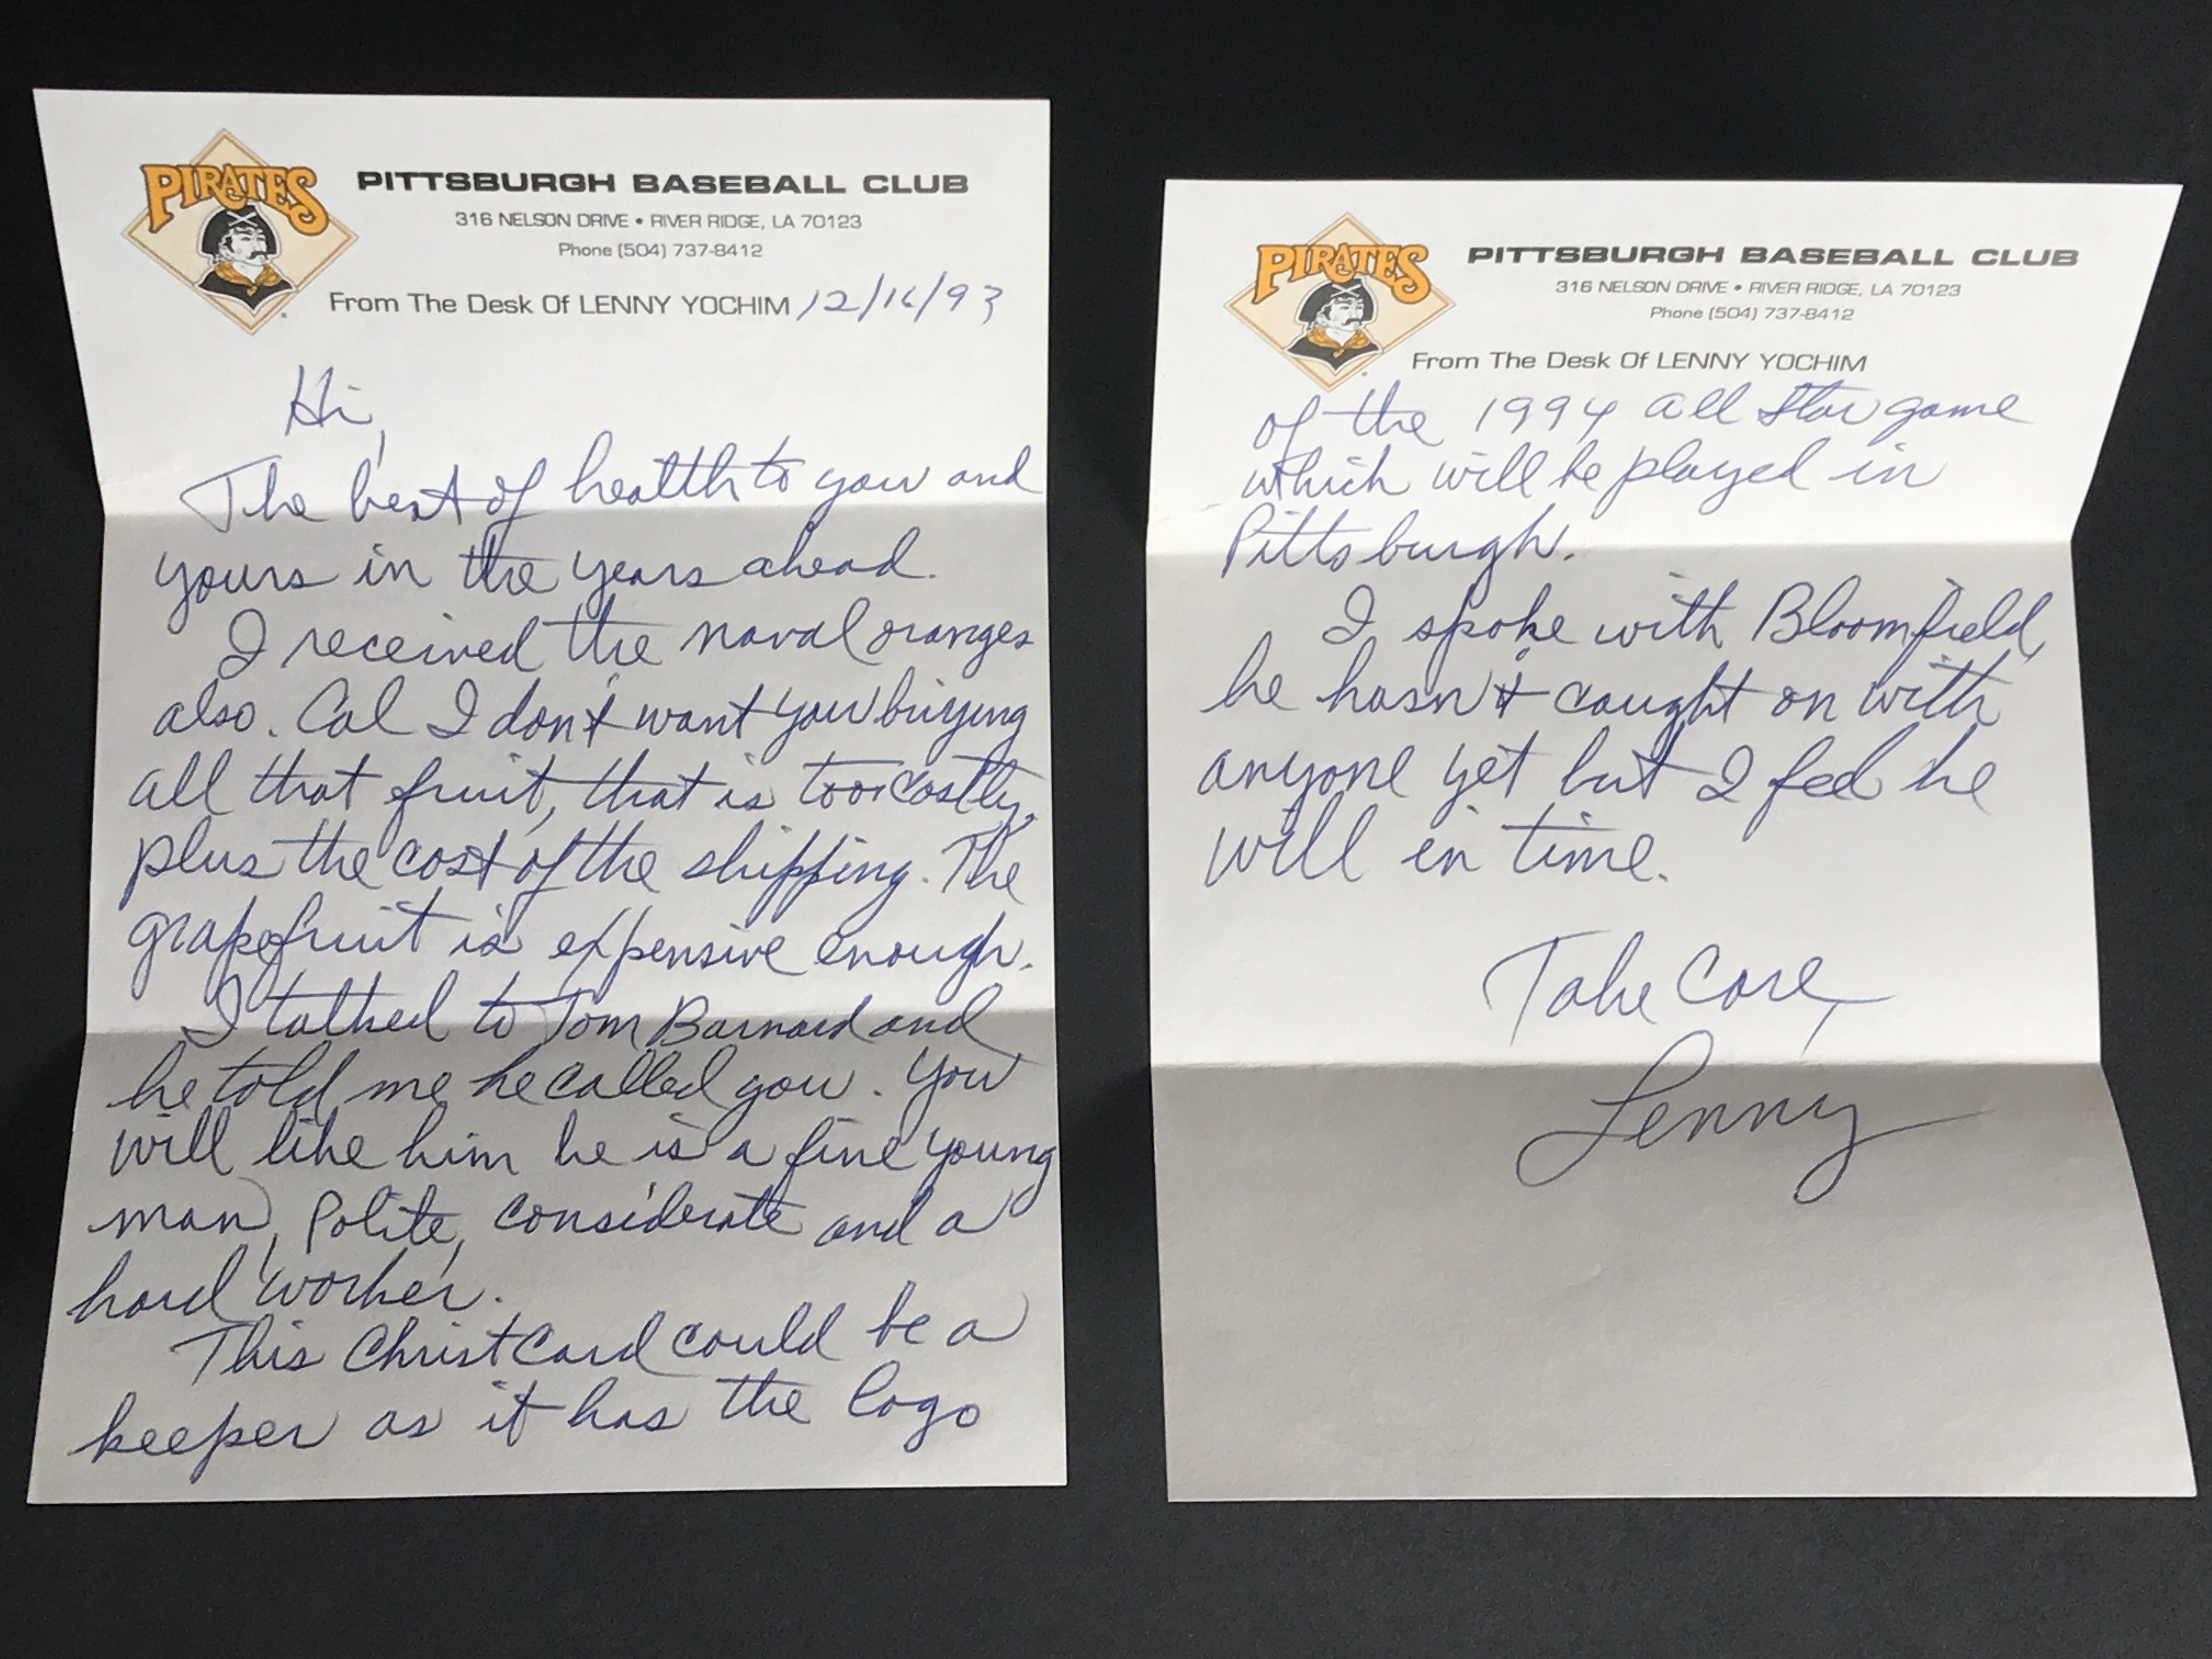 PIRATES
PITTSBURGH BASEBALL CLUB
316 NELSON DRIVE • RIVER RIDGE, LA 70123
Phone (504) 737-8412
From The Desk Of LENNY YOCHIM 12/16/93
Hi,
The best of health to you and
yours in the years ahead.
I received the naval oranges
also. Cal I don't want you buying
all that fruit, that is too costly,
plus the cost of the shipping. The
grapefruit is expensive enough.
I talked to Tom Barnard and
he told me he called you. You
will like him he is a fine young
man, Polite, considerate and a
hard worker.
This Christ Card could be a
keeper as it has the logo
PIRATES
PITTSBURGH BASEBALL CLUB
316 NELSON DRIVE • RIVER RIDGE, LA 70123
Phone (504) 737-8412
From The Desk Of LENNY YOCHIM
of the 1994 all Star game
which will be played in
Pittsburgh.
I spoke with Bloomfield,
he hasn't caught on with
anyone yet but I feel he
will in time.
Take Care,
Lenny